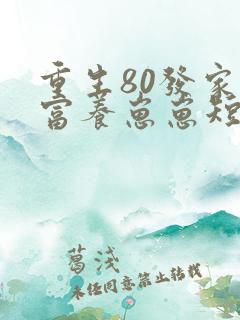 重生80發家
富養崽崽短
葛淺
未经同意禁止转载